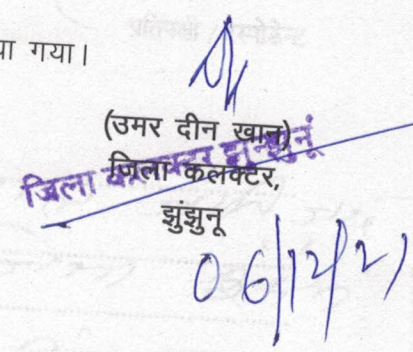 या गया।
(उमर दीन खान)
जिला कलक्टर झुन्झुनूं
जिला कलक्टर,
झुंझुनू
06/12/21